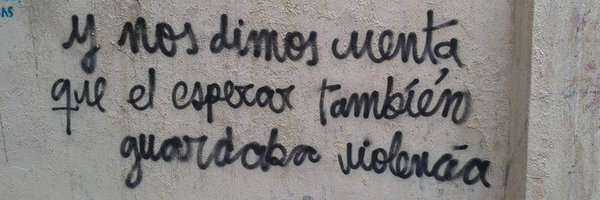 y nos dimos cuenta
que el esperar también
guardaba violencia